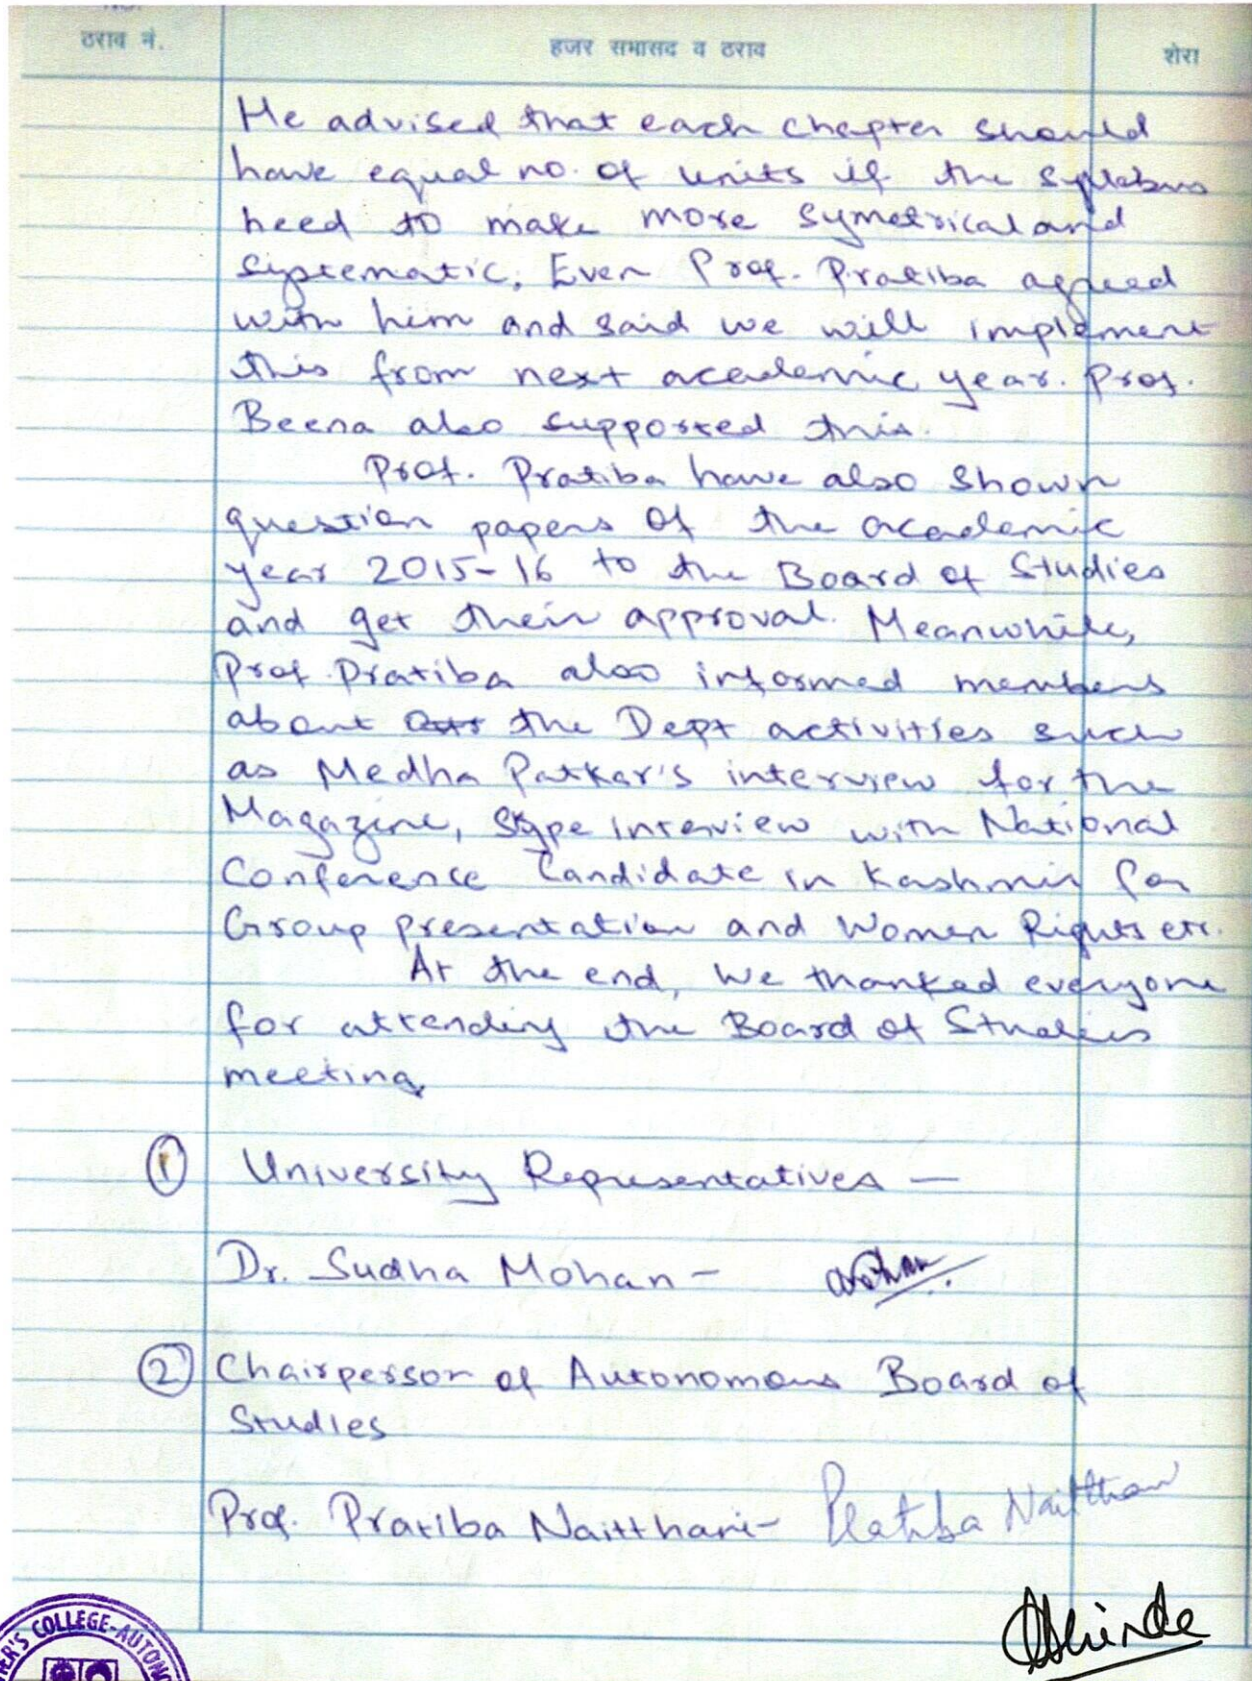 ठराव नं.
हजर सभासद व ठराव
शेरा
He advised that each chapter should
have equal no. of units if the syllabus
need to make more symetrical and
systematic. Even Prof. Pratiba agreed
with him and said we will implement
this from next academic year. Prof.
Beena also supported this.
Prof. Pratiba have also shown
question papers of the academic
year 2015-16 to the Board of Studies
and get their approval. Meanwhile,
Prof. Pratiba also informed members
about the Dept activities such
as Medha Patkar's interview for the
Magazine, Skype Interview with National
Conference Candidate in Kashmir for
Group presentation and Women Rights etc.
At the end, we thanked everyone
for attending the Board of Studies
meeting.
① University Representatives —
Dr. Sudha Mohan -
② Chairperson of Autonomous Board of
Studies
Prof. Pratiba Naitthani - Pratiba Naitthani
COLLEGE-AUTON